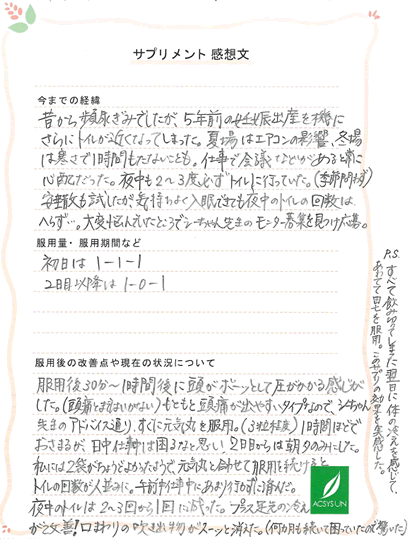 サプリメント 感想文
今までの経緯
昔から頻尿ぎみでしたが、5年前の妊娠出産を機に
さらにトイレが近くなってしまった。夏場はエアコンの影響、冬場
は寒さで1時間もたないことも。仕事で会議などがあると常に
心配だった。夜中も2〜3度必ずトイレに行っていた。(季節問わず)
安眠散も試したが気持ちよく入眠できても夜中のトイレの回数は
へらず…。大変悩んでいたところでシーちゃん先生のモニター募集を見つけ応募。
服用量・服用期間など
初日は 1-1-1
2日目以降は 1-0-1
服用後の改善点や現在の状況について
服用後30分〜1時間後に頭がボーッとして圧がかかる感じが
した。(頭痛とまではいかないが)もともと頭痛が出やすいタイプなので、シーちゃん
先生のアドバイス通り、すぐに元気丸を服用。(3粒程度)1時間ほどで
おさまるが、日中仕事は困るなと思い、2日目からは朝夕のみにした。
私には2袋がちょうどよかったようで、元気丸と合わせて服用を続けると
トイレの回数が人並みに。午前中仕事中にあまり行かずに済んだ。
夜中のトイレは2〜3回から1回に減った。プラス足先の冷え
が改善!口まわりの吹き出物がスーッと消えた。(何か月も続いて困っていたので驚いた)
P.S. すべて飲みきってしまった翌日に体の冷えを感じて、
あわてて を服用。このサプリの効果を実感した。
ACSYS UN